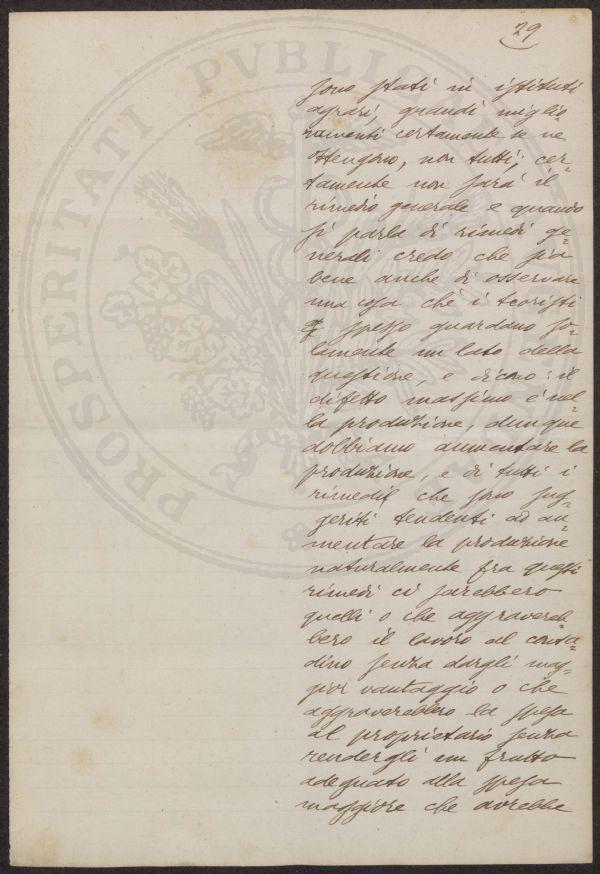 29
sono stati in istituti
agrari, grandi miglio
ramenti certamente se ne
ottengono, non tutti; cer-
tamente non sarà il
rimedio generale e quando
si parla di rimedi ge-
nerali credo che sia
bene anche di osservare
una cosa che i teoristi
spesso guardano so-
lamente un lato della
questione, e dicono: il
difetto massimo è nel-
la produzione, dunque
dobbiamo aumentare la
produzione, e di tutti i
rimedii che sono sug-
geriti tendenti ad au-
mentare la produzione
naturalmente fra questi
rimedi ci sarebbero
quelli o che aggravereb-
bero il lavoro al conta-
dino senza dargli mag-
gior vantaggio o che
aggraverebbero la spesa
al proprietario senza
rendergli un frutto
adeguato alla spesa
maggiore che avrebbe
PROSPERITATI PVBLICAE